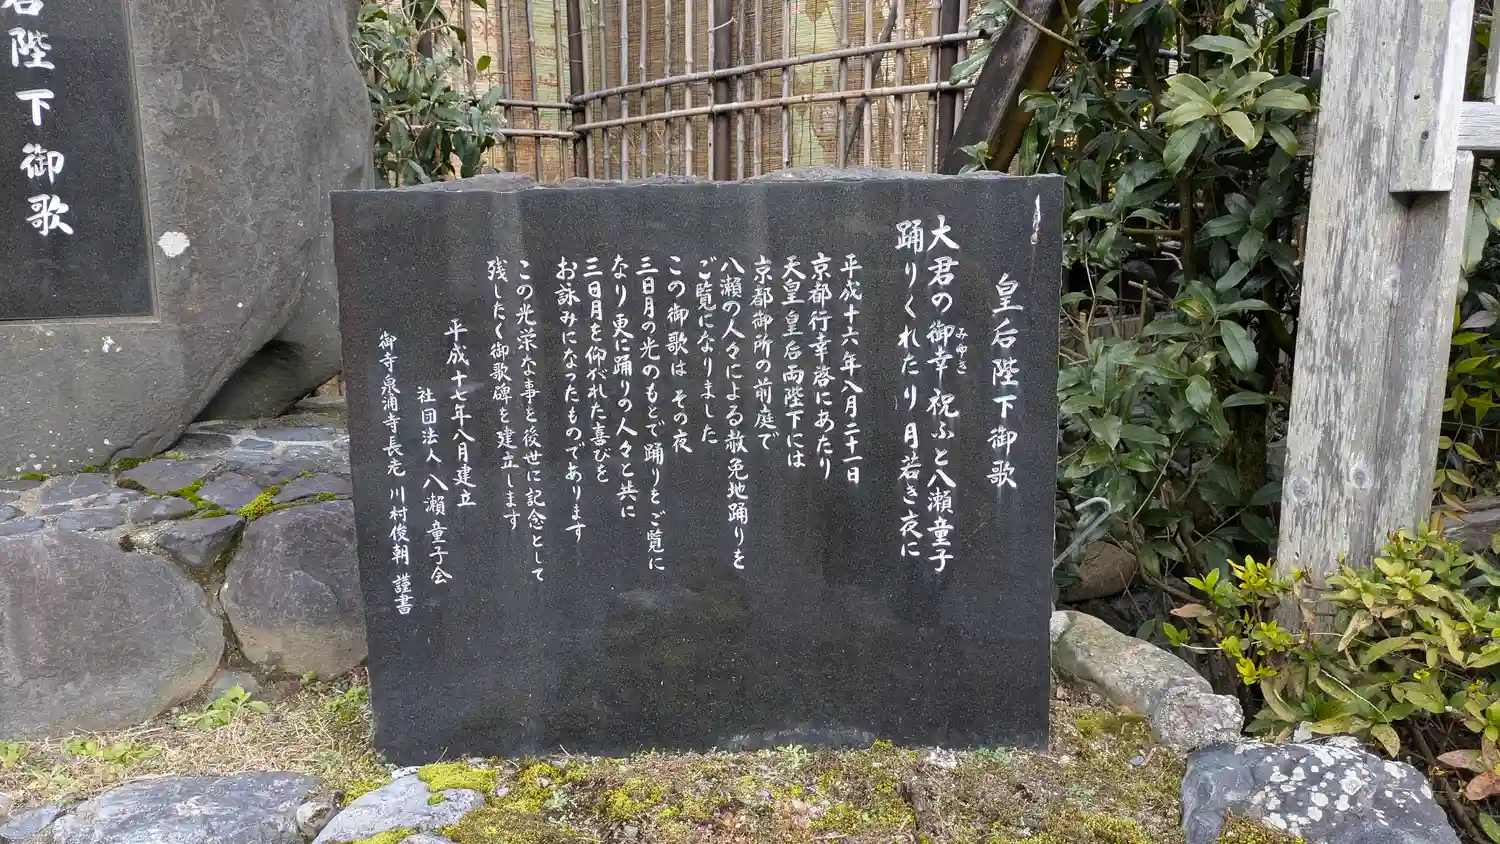 皇后陛下御歌
大君の御幸祝ふと八瀬童子
みゆき
踊りくれたり月若き夜に
平成十六年八月二十一日
京都行幸啓にあたり
天皇皇后両陛下には
京都御所の前庭で
八瀬の人々による赦免地踊りを
ご覧になりました
この御歌は その夜
三日月の光のもとで踊りをご覧に
なり 更に踊りの人々と共に
三日月を仰がれた喜びを
お詠みになったものであります
この光栄な事を後世に記念として
残したく御歌碑を建立します
平成十七年八月建立
社団法人 八瀬童子会
御寺泉涌寺長老 川村俊朝 謹書
陛下御歌